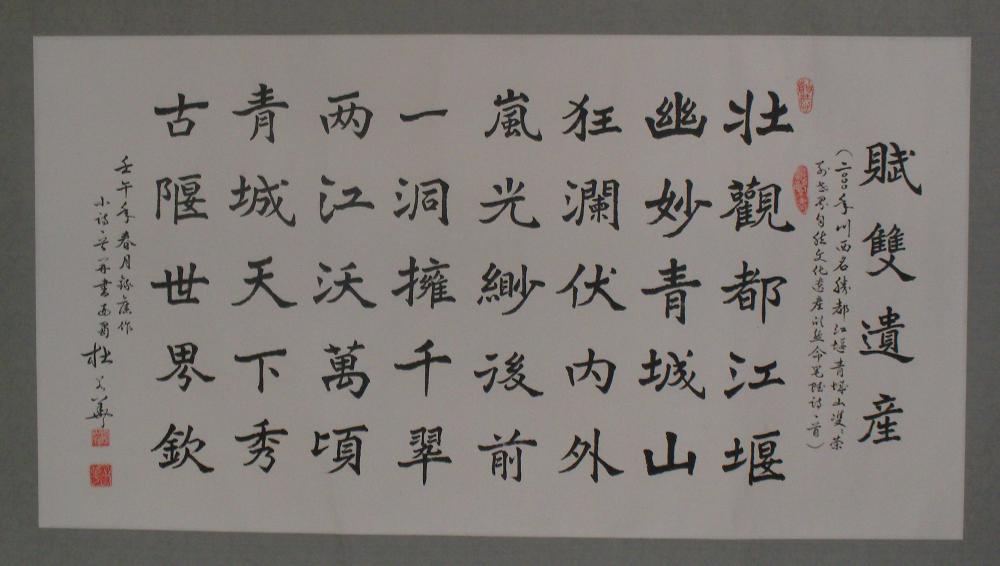 賦雙遺產
(二〇〇〇年川西名勝都江堰青城山雙雙榮
列世界自然文化遺產
壯觀都江堰
幽妙青城山
狂瀾伏内外
嵐光緲後前
一洞擁千翠
两江沃萬頃
青城天下秀
古隁世界欽
壬午年春月
小詩一首并書西蜀
杜